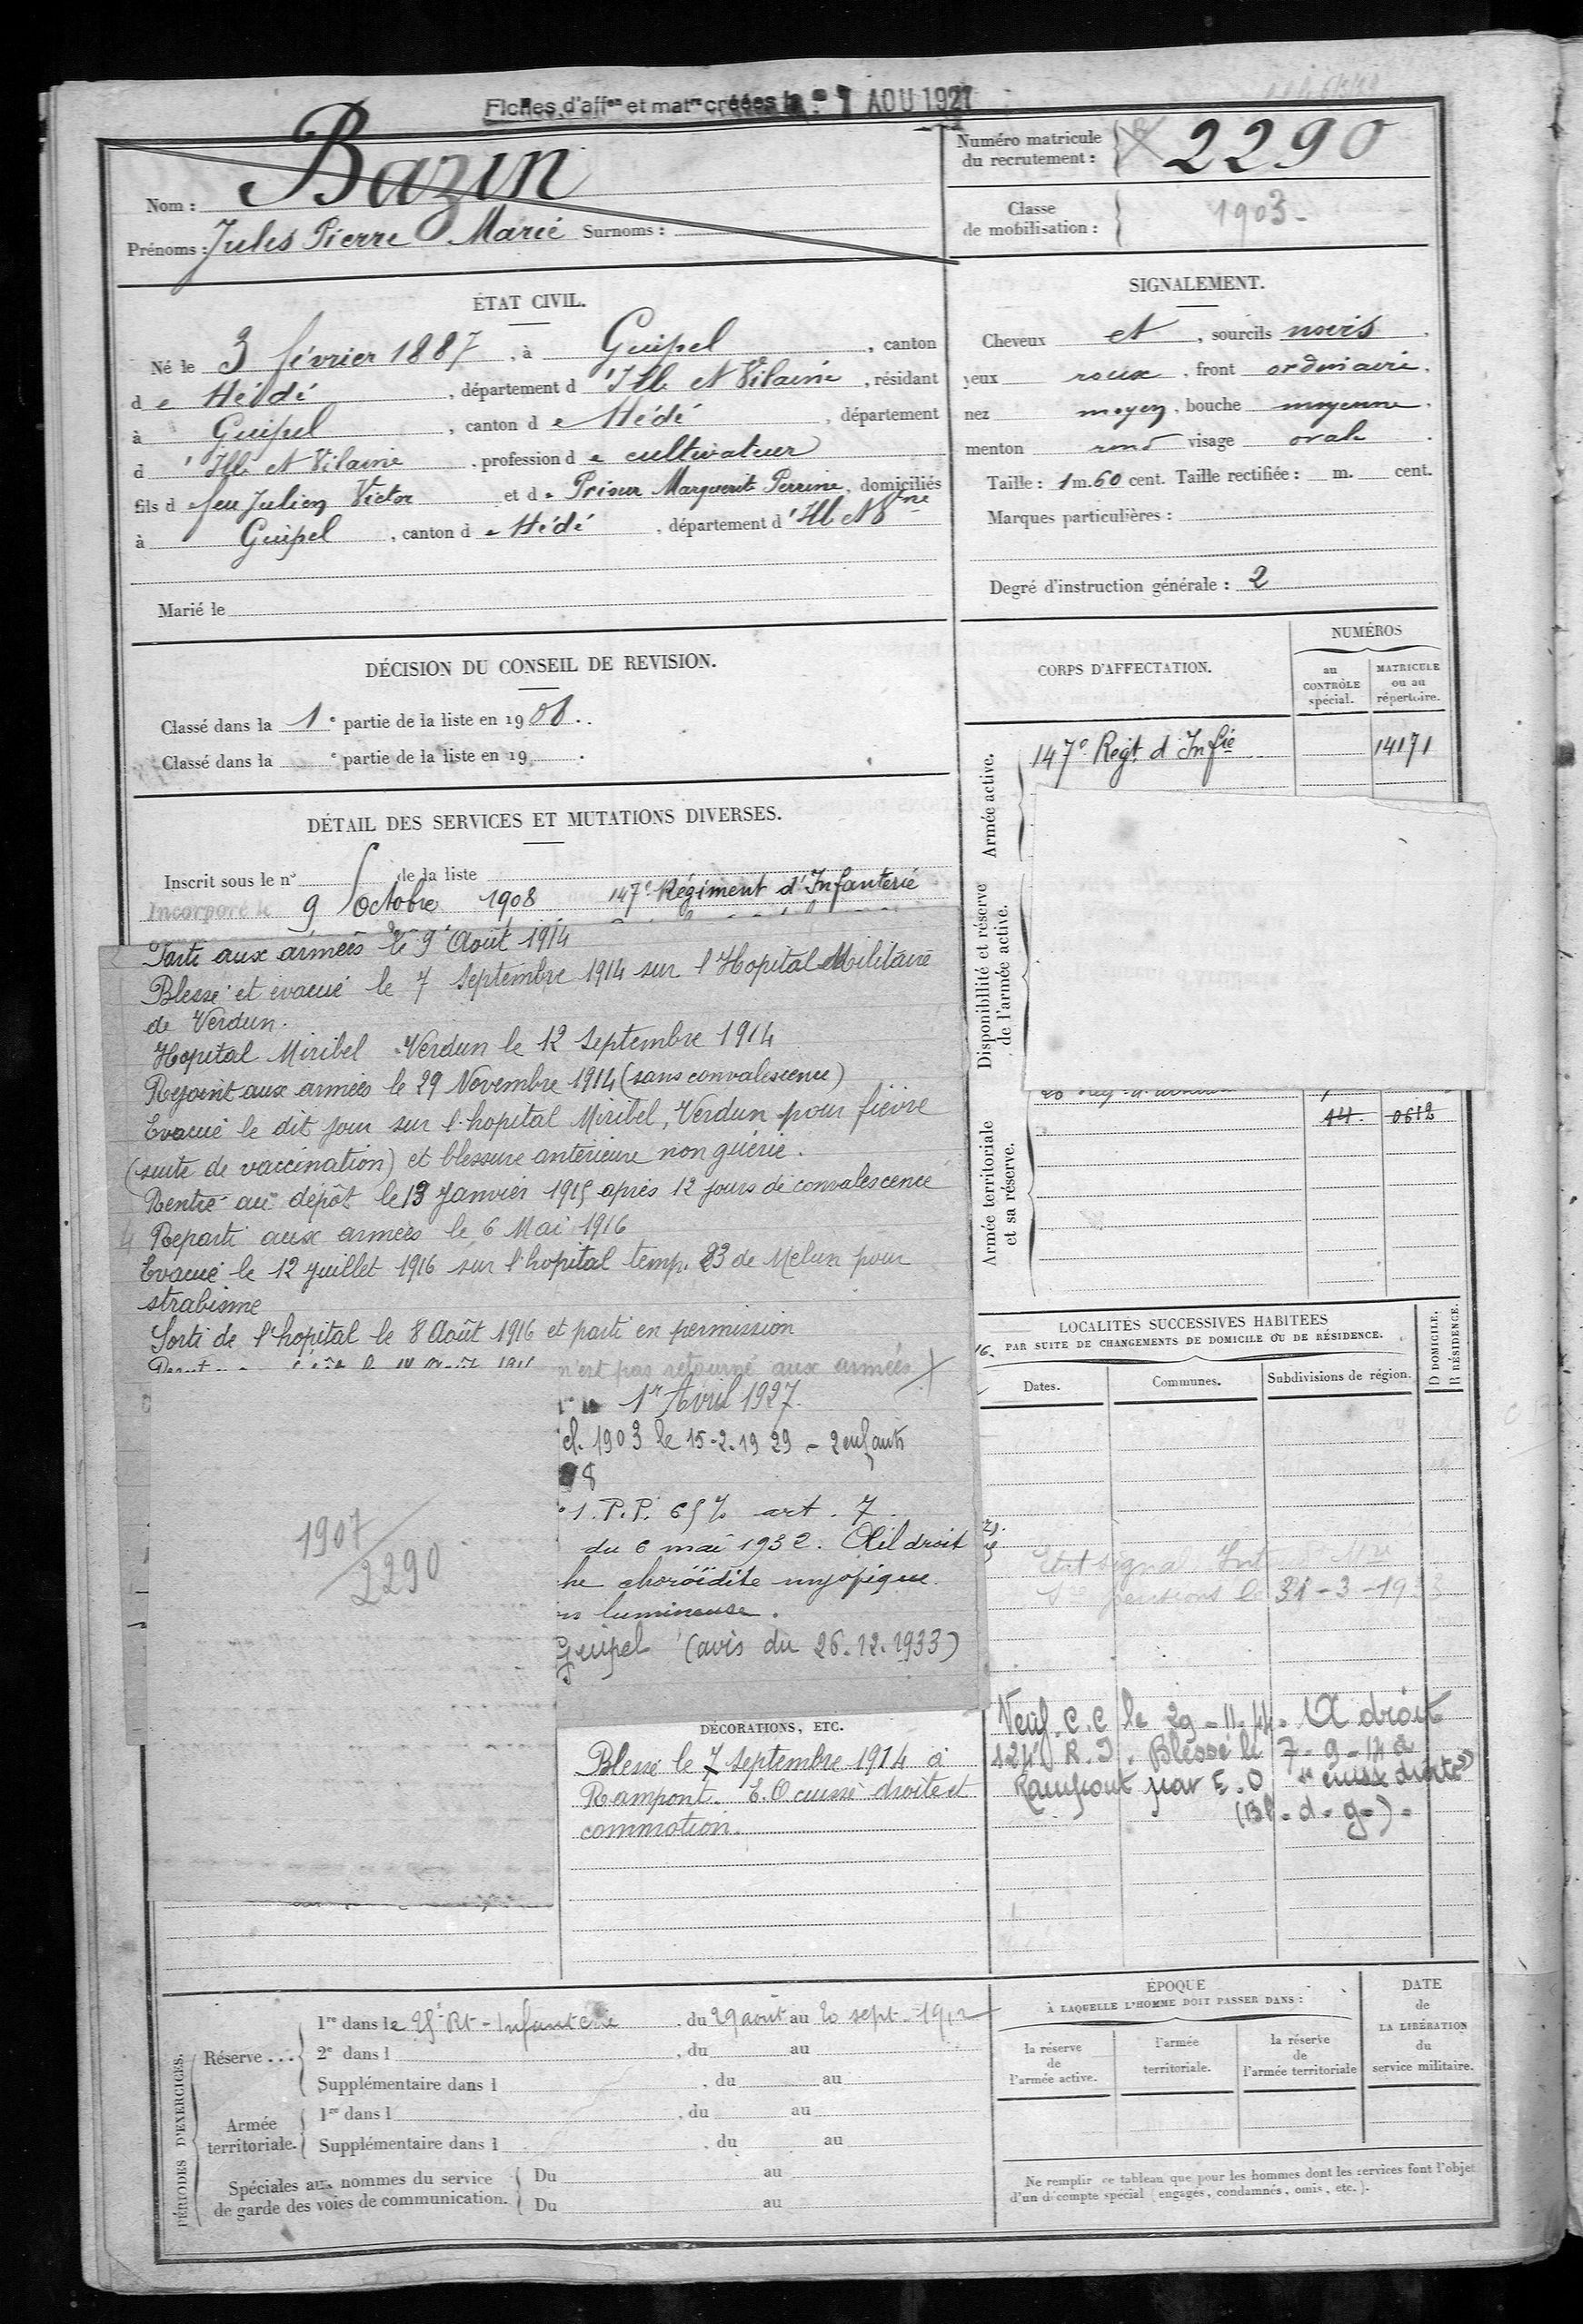 Fiches d'affon et matre créées le 1 AOU 1927
Nom : Bazin
Prénoms : Jules Pierre Marie Surnoms :
Numéro matricule
du recrutement : 2290
Classe
de mobilisation : 1903
ÉTAT CIVIL.
Né le 3 février 1887, à Guipel, canton
de Hédé, département d'Ille et Vilaine, résidant
à Guipel, canton de Hédé, département
d'Ille et Vilaine, profession de cultivateur
fils de feu Julien Victor et de Prioux Marguerite Perrine, domiciliés
à Guipel, canton de Hédé, département d'Ille et Vne
Marié le
SIGNALEMENT.
Cheveux et, sourcils noirs.
yeux roux, front ordinaire,
nez moyen, bouche moyenne,
menton rond visage ovale.
Taille : 1 m. 60 cent. Taille rectifiée : m. cent.
Marques particulières :
Degré d'instruction générale : 2
DÉCISION DU CONSEIL DE REVISION.
Classé dans la 1e partie de la liste en 1908.
Classé dans la e partie de la liste en 19 .
CORPS D'AFFECTATION.
NUMÉROS
au
CONTRÔLE
spécial.
MATRICULE
ou au
répertoire.
Armée active.
147e Regt. d'Infie 14171
Disponibilité et réserve
de l'armée active.
Armée territoriale
et sa réserve.
44. 0612
DÉTAIL DES SERVICES ET MUTATIONS DIVERSES.
Inscrit sous le n° de la liste
Incorporé le 9 octobre 1908 au 147e Régiment d'Infanterie
Parti aux armées le 9 Août 1914
Blessé et évacué le 7 Septembre 1914 sur l'Hopital Militaire
de Verdun.
Hopital Miribel Verdun le 12 Septembre 1914
Rejoint aux armées le 29 Novembre 1914 (sans convalescence)
Evacué le dit jour sur l'hopital Miribel, Verdun pour fièvre
(suite de vaccination) et blessure antérieure non guérie.
Rentré au dépôt le 13 Janvier 1915 après 12 jours de convalescence
Reparti aux armées le 6 Mai 1916
Evacué le 12 Juillet 1916 sur l'hopital temp. 23 de Melun pour
strabisme
Sorti de l'hopital le 8 Août 1916 et parti en permission
n'est pas retourné aux armées
1er Avril 1927.
cl. 1903 le 15-2-1929 - 2 enfants
8
1. P.P. 65% art. 7.
du 6 mai 1932. Œil droit
he choroïdite myopique
lumineuse.
Guipel (avis du 26.12.1933)
1907
2290
LOCALITÉS SUCCESSIVES HABITÉES
PAR SUITE DE CHANGEMENTS DE DOMICILE OU DE RÉSIDENCE.
Dates.
Communes.
Subdivisions de région.
D DOMICILE.
R RÉSIDENCE.
pensions le 31-3-193
C.C le 29-11-44. droit
124e R.I. Blessé le 7-9-14 à
Rampont par E.O "cuisse droite"
(Bl-d-g-)-
DÉCORATIONS, ETC.
Blessé le 7 Septembre 1914 à
Rampont. E.O cuisse droite et
commotion.
PÉRIODES D'EXERCICES.
Réserve... 1re dans le 25e Rt-Infanterie, du 29 août au 20 sept. 1912
2e dans l , du au
Supplémentaire dans l , du au
Armée
territoriale.
1re dans l , du au
Supplémentaire dans l , du au
Spéciales aux hommes du service
de garde des voies de communication.
Du au
Du au
ÉPOQUE
À LAQUELLE L'HOMME DOIT PASSER DANS :
la réserve
de
l'armée active.
l'armée
territoriale.
la réserve
de
l'armée territoriale
DATE
de
LA LIBÉRATION
du
service militaire.
Ne remplir ce tableau que pour les hommes dont les services font l'objet
d'un décompte spécial (engagés, condamnés, omis, etc.).